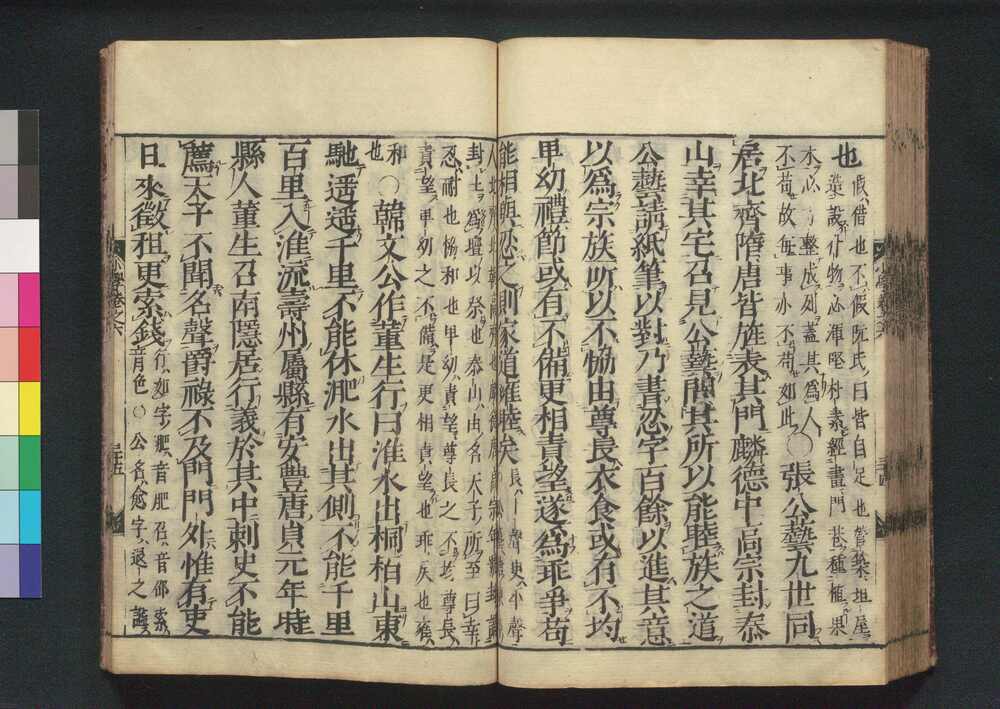 也
假借也不假阮氏曰皆自足也營築垣屋
木必整成列蓋其爲人
不苟故每事亦不苟如此○張公藝九世同
居北齊隋唐皆旌表其門麟德中高宗封泰
山幸其宅召見公藝問其所以能睦族之道
公藝請紙筆以對乃書忍字百餘以進其意
以爲宗族所以不協由尊長衣食或有不均
卑幼禮節或有不備更相責望遂爲乖爭苟
能相與忍之則家道雍睦矣
卦土爲壇以祭也泰山由名天子所至曰幸
忍耐也協和也卑幼責望尊長之不均尊長
責望卑幼之不備是更相責望也乖戾也雍
和也○韓文公作董生行曰淮水出桐柏山東
馳遥遥千里不能休淝水出其側不能千里
百里入淮流壽州屬縣有安豐唐貞元年時
縣人董生召南隱居行義於其中刺史不能
薦天子不聞名聲爵祿不及門門外惟有吏
日來徵租更索錢
音色○公名愈字退之
小學卷之六
三十五